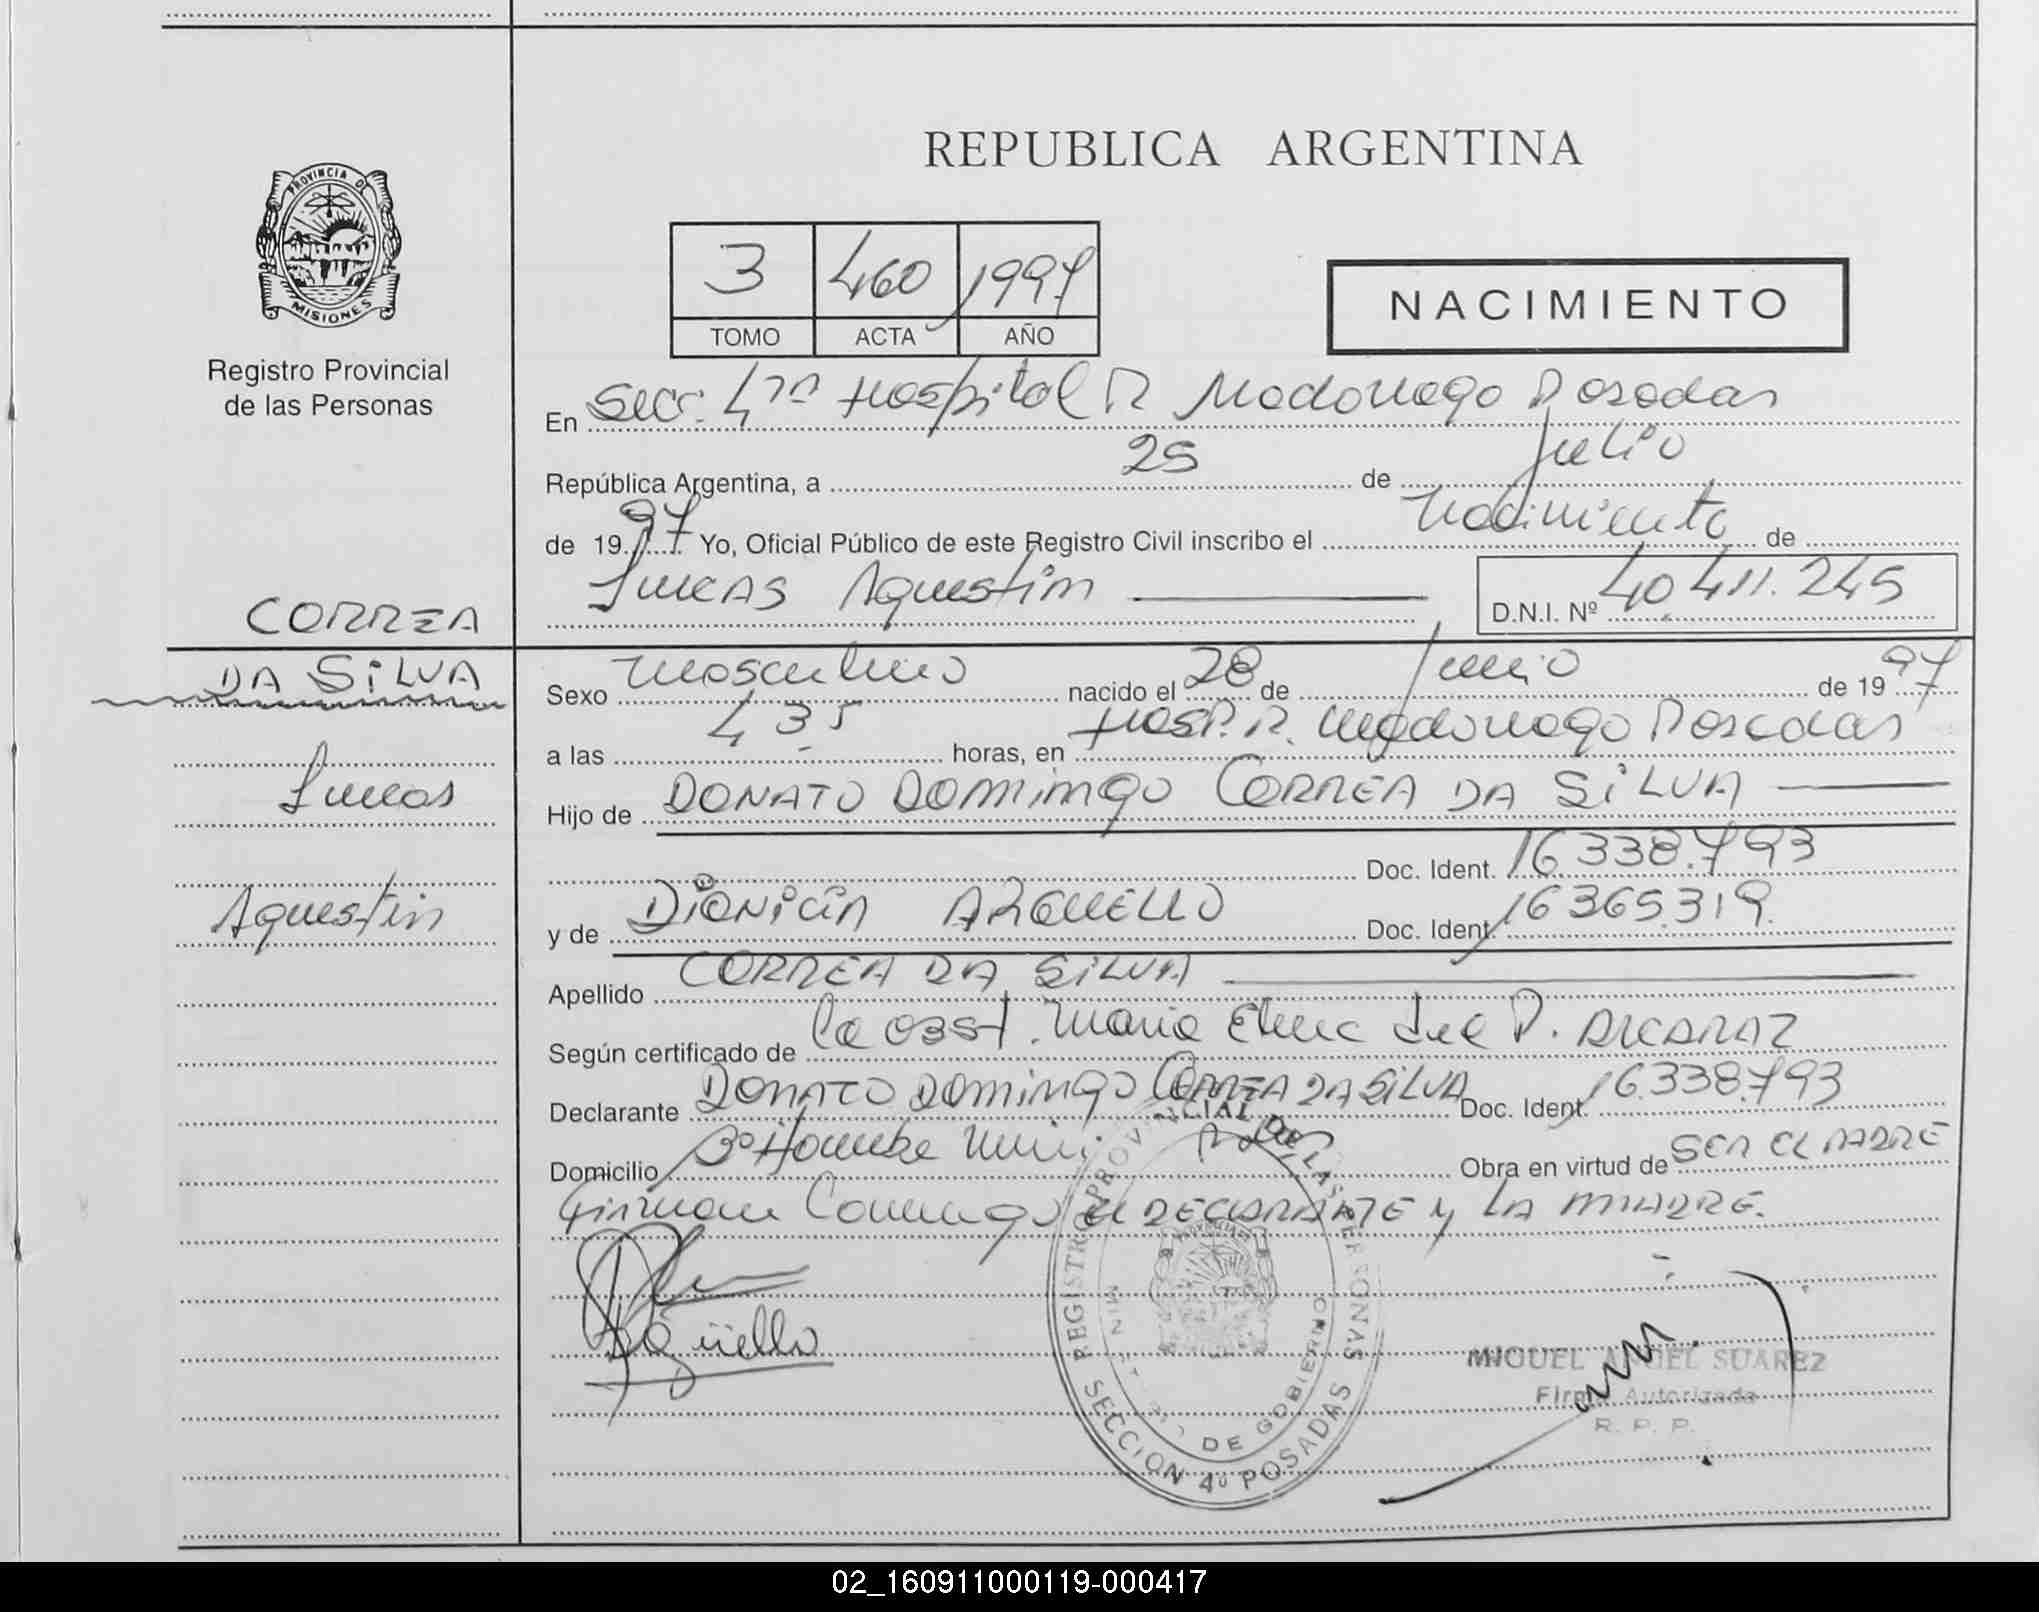 REPUBLICA ARGENTINA
PROVINCIA DE
MISIONES
Registro Provincial
de las Personas
3 460 1997
TOMO ACTA AÑO
NACIMIENTO
En Secc. 4ta Hospital R Madariaga Posadas
República Argentina, a 25 de Julio
de 1997 Yo, Oficial Público de este Registro Civil inscribo el Nacimiento de
Lucas Agustin
D.N.I. Nº 40.411.245
CORREA
DA SILVA
Lucas
Agustin
Sexo Masculino nacido el 28 de Junio de 1997
a las 4 35 horas, en Hosp. R. Madariaga Posadas
Hijo de DONATO DOMINGO CORREA DA SILVA
Doc. Ident. 16.338.793
y de DIONICIA ARGUELLO Doc. Ident. 16.365.319.
Apellido CORREA DA SILVA
Según certificado de la OBST. Maria Elena del P. ALCARAZ
Declarante DONATO DOMINGO CORREA DA SILVA Doc. Ident. 16.338.793
Domicilio Bº Hombre Obra en virtud de SER EL PADRE
Firman Conmigo el DECLARANTE y LA MADRE.
Argüello
REGISTRO PROVINCIAL DE LAS PERSONAS
MINISTERIO DE GOBIERNO
SECCION 4º POSADAS
MIGUEL ANGEL SUAREZ
Firma Autorizada
R. P. P.
02_160911000119-000417